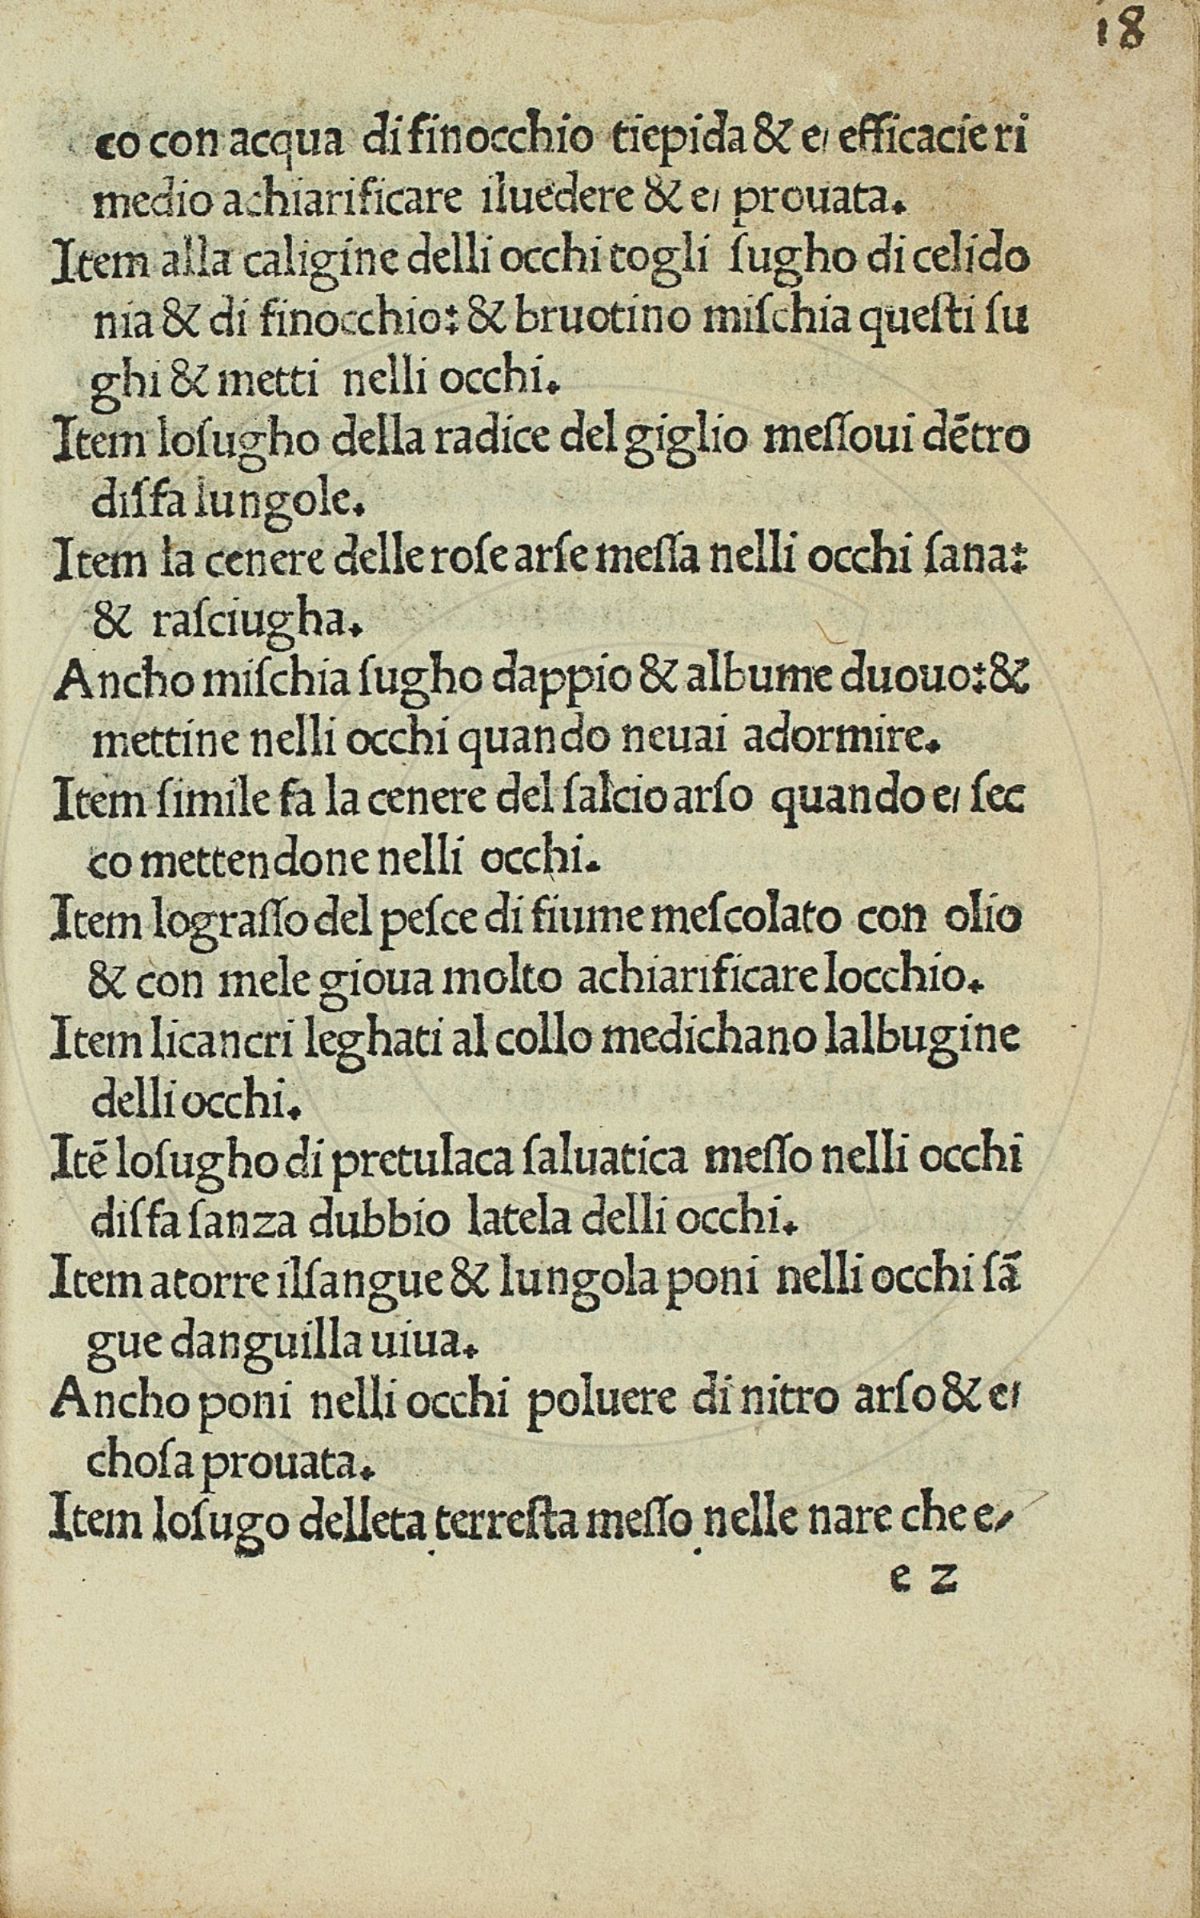 18
co con acqua di finocchio tiepida & e, efficacie ri
medio achiarificare iluedere & e, prouata.
Item alla caligine delli occhi togli ſugho di celido
nia & di finocchio: & bruotino miſchia queſti ſu
ghi & metti nelli occhi.
Item loſugho della radice del giglio meſſoui dētro
diſfa lungole.
Item la cenere delle roſe arſe meſſa nelli occhi ſana:
& raſciugha.
Ancho miſchia ſugho dappio & albume duouo: &
mettine nelli occhi quando neuai adormire.
Item ſimile fa la cenere del ſalcio arſo quando e, ſec
co mettendone nelli occhi.
Item lograſſo del peſce di fiume meſcolato con olio
& con mele gioua molto achiarificare locchio.
Item licancri leghati al collo medichano lalbugine
delli occhi.
Itē loſugho di pretulaca ſaluatica meſſo nelli occhi
diſfa ſanza dubbio latela delli occhi.
Item atorre ilſangue & lungola poni nelli occhi ſā
gue danguilla uiua.
Ancho poni nelli occhi poluere di nitro arſo & e,
choſa prouata.
Item loſugo delleta terreſta meſſo nelle nare che e,
e 2